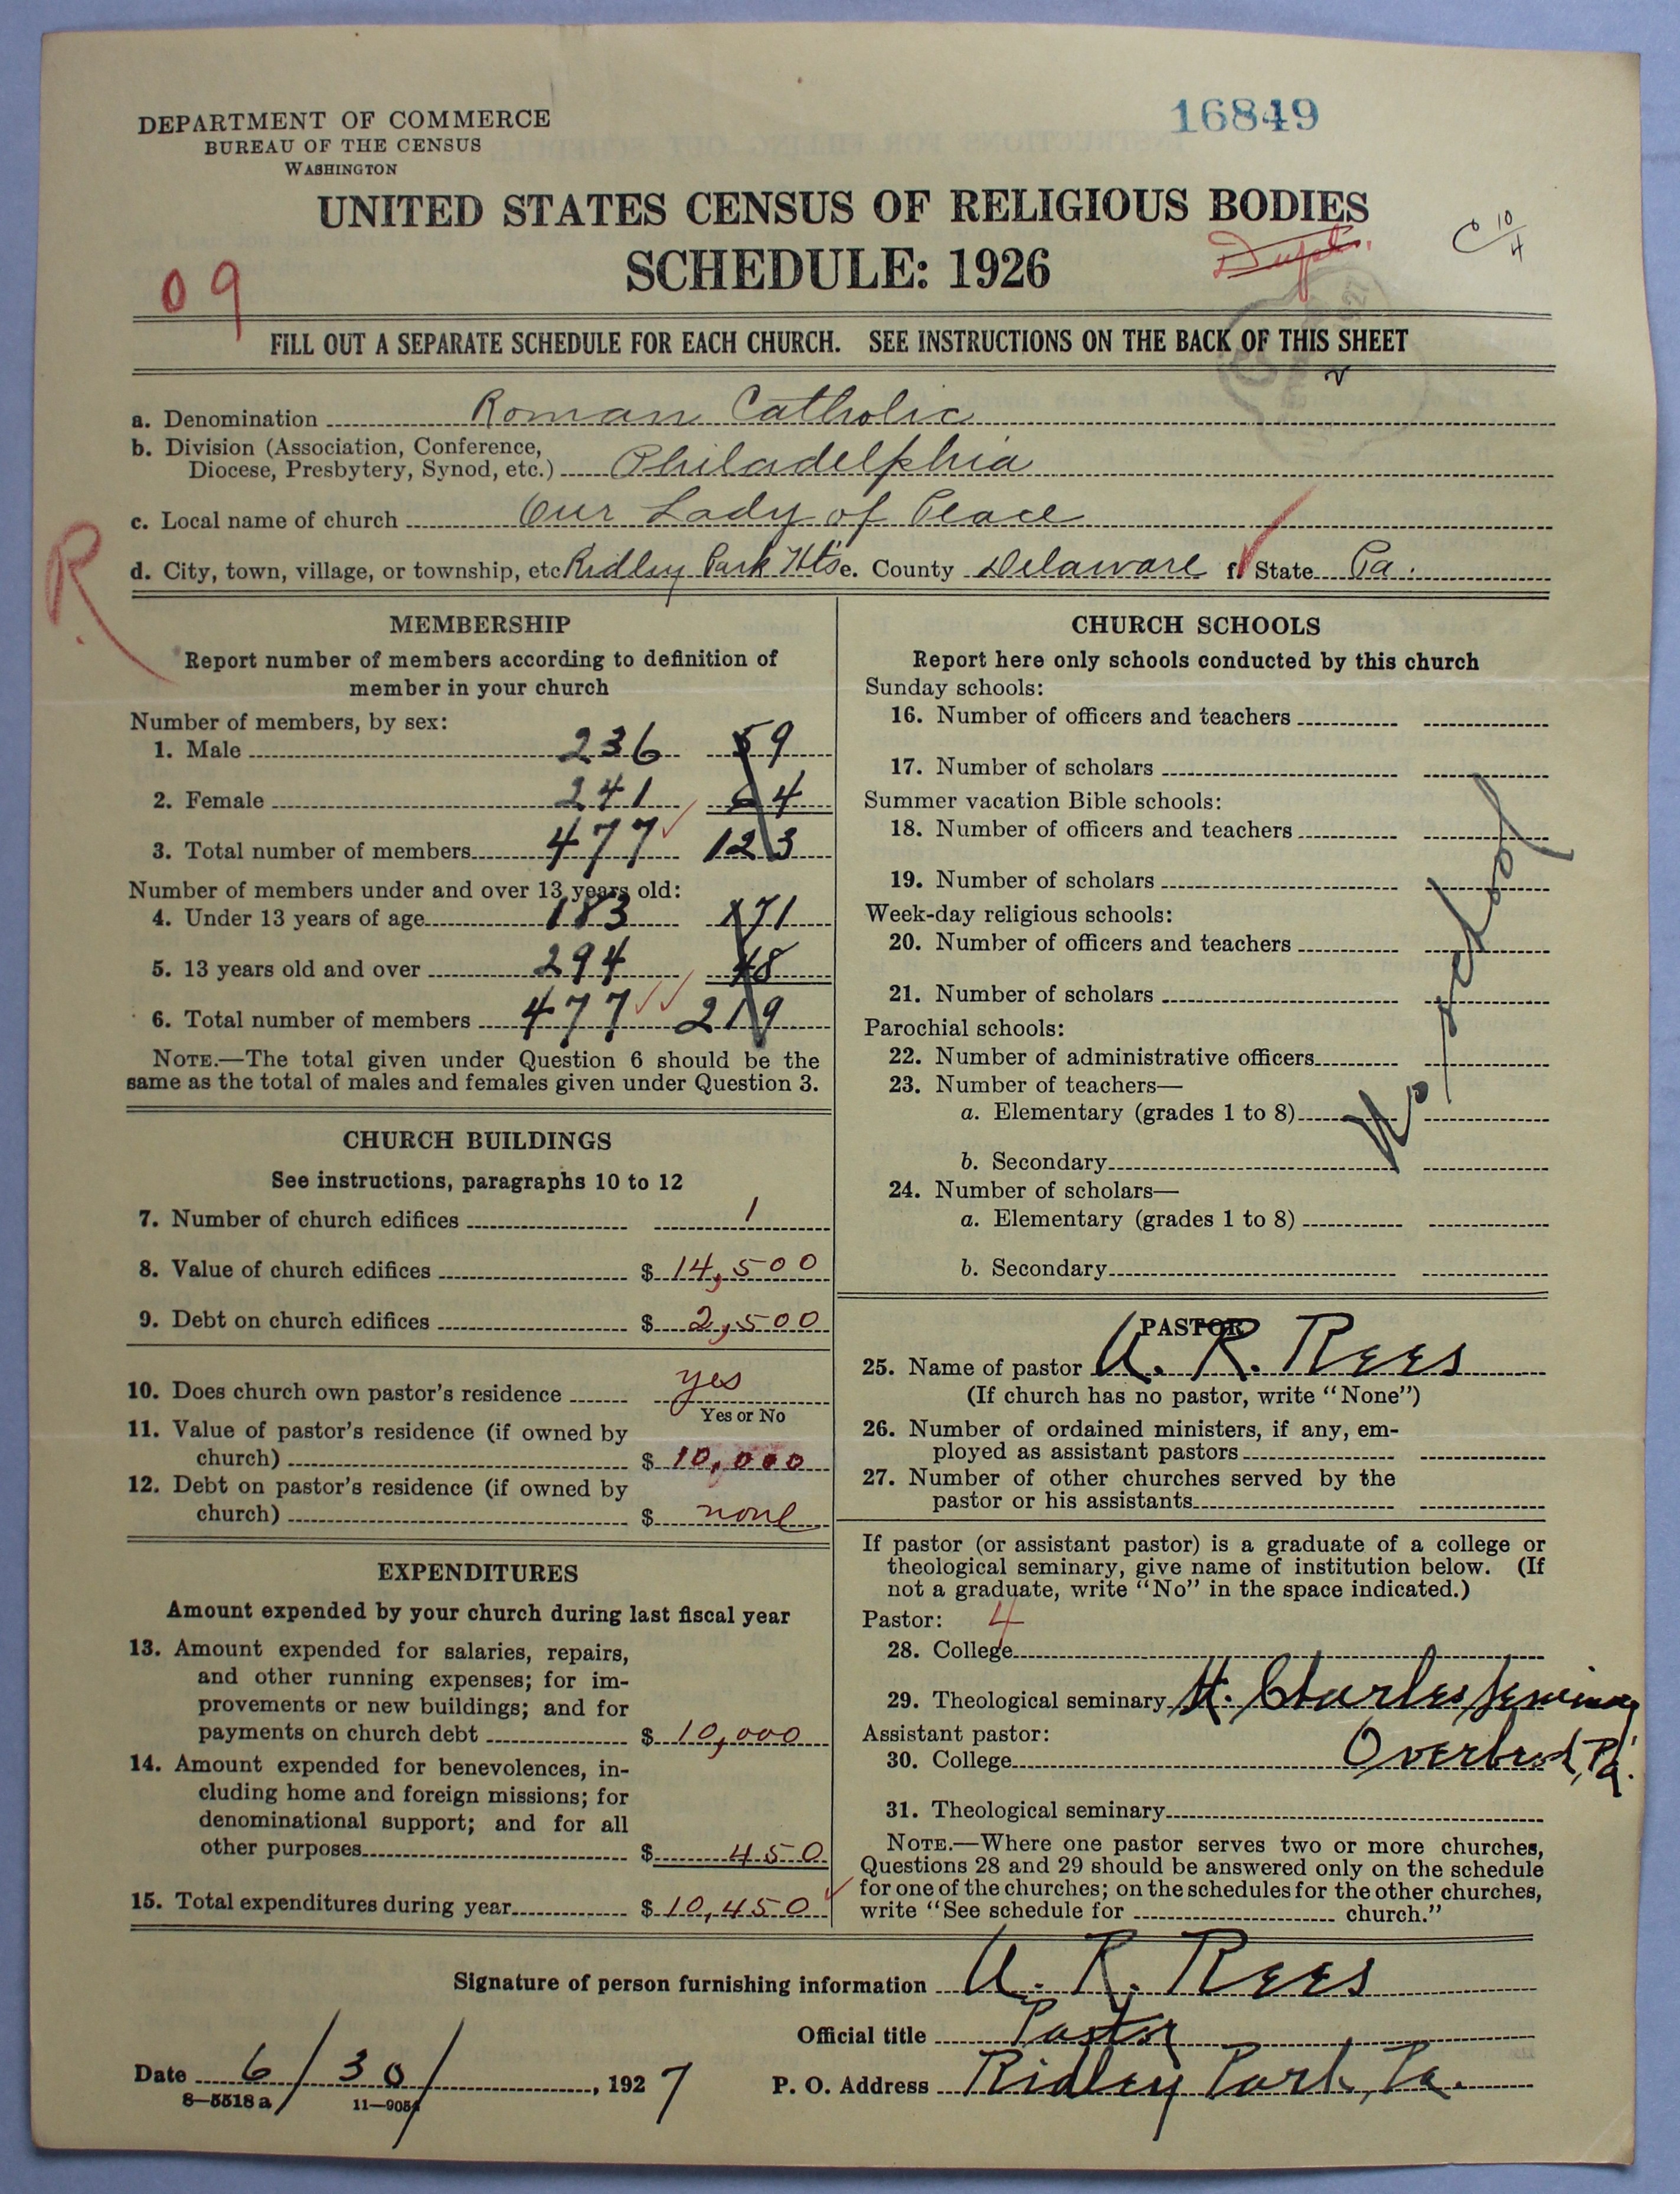 DEPARTMENT OF COMMERCE
BUREAU OF THE CENSUS
WASHINGTON
16849
UNITED STATES CENSUS OF RELIGIOUS BODIES
SCHEDULE: 1926
Dupl.
C 10/4
09
FILL OUT A SEPARATE SCHEDULE FOR EACH CHURCH. SEE INSTRUCTIONS ON THE BACK OF THIS SHEET
a. Denomination Roman Catholic
b. Division (Association, Conference,
Diocese, Presbytery, Synod, etc.) Philadelphia
c. Local name of church Our Lady of Peace
d. City, town, village, or township, etc Ridley Park Hts e. County Delaware f. State Pa.
R
MEMBERSHIP
Report number of members according to definition of
member in your church
Number of members, by sex:
1. Male 236 59
2. Female 241 64
3. Total number of members 477 123
Number of members under and over 13 years old:
4. Under 13 years of age 183 171
5. 13 years old and over 294 48
6. Total number of members 477 219
NOTE.—The total given under Question 6 should be the
same as the total of males and females given under Question 3.
CHURCH BUILDINGS
See instructions, paragraphs 10 to 12
7. Number of church edifices 1
8. Value of church edifices $ 14,500
9. Debt on church edifices $ 2,500
10. Does church own pastor's residence yes
Yes or No
11. Value of pastor's residence (if owned by
church) $ 10,000
12. Debt on pastor's residence (if owned by
church) $ none
EXPENDITURES
Amount expended by your church during last fiscal year
13. Amount expended for salaries, repairs,
and other running expenses; for im-
provements or new buildings; and for
payments on church debt $ 10,000
14. Amount expended for benevolences, in-
cluding home and foreign missions; for
denominational support; and for all
other purposes $ 450
15. Total expenditures during year $ 10,450
CHURCH SCHOOLS
Report here only schools conducted by this church
Sunday schools:
16. Number of officers and teachers
17. Number of scholars
Summer vacation Bible schools:
18. Number of officers and teachers
19. Number of scholars
Week-day religious schools:
20. Number of officers and teachers
21. Number of scholars
Parochial schools:
22. Number of administrative officers
23. Number of teachers—
a. Elementary (grades 1 to 8)
b. Secondary
24. Number of scholars—
a. Elementary (grades 1 to 8)
b. Secondary
No school
PASTOR
25. Name of pastor A. R. Rees
(If church has no pastor, write "None")
26. Number of ordained ministers, if any, em-
ployed as assistant pastors
27. Number of other churches served by the
pastor or his assistants
If pastor (or assistant pastor) is a graduate of a college or
theological seminary, give name of institution below. (If
not a graduate, write "No" in the space indicated.)
Pastor: 4
28. College
29. Theological seminary St. Charles Seminary
Assistant pastor:
Overbrook, Pa.
30. College
31. Theological seminary
NOTE.—Where one pastor serves two or more churches,
Questions 28 and 29 should be answered only on the schedule
for one of the churches; on the schedules for the other churches,
write "See schedule for church."
Signature of person furnishing information A. R. Rees
Official title Pastor
Date 6/30/, 1927 P. O. Address Ridley Park, Pa.
8—5518a 11—9054